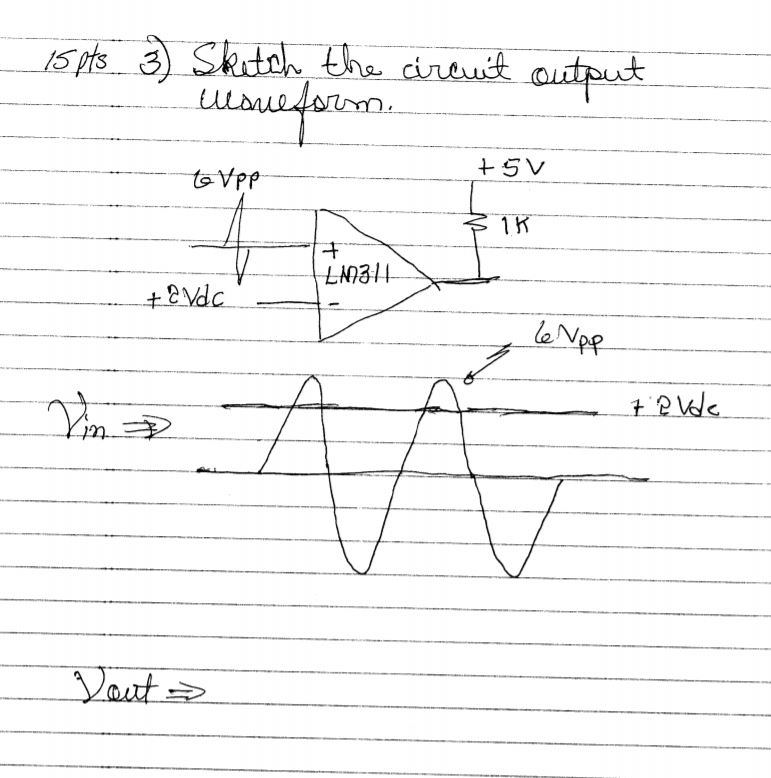 15pts 3) Sketch the circuit output
waveform.
+5V
6Vpp
1K
+
LM311
+2Vdc -
6Vpp
Vin ⇒ +2Vdc
Vout ⇒